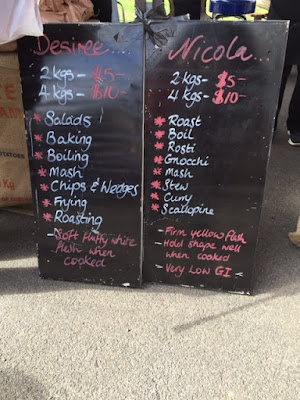 Desiree...
2 kgs - $5-
4 kgs - $10-
* Salads
* Baking
* Boiling
* Mash
* Chips & Wedges
* Frying
* Roasting
- Soft fluffy white
flesh when
cooked
Nicola...
2 kgs - $5-
4 kgs - $10-
* Roast
* Boil
* Rosti
* Gnocchi
* Mash
* Stew
* Curry
* Scallopine
- Firm yellow flesh
- Hold shape well
when cooked
- Very Low GI